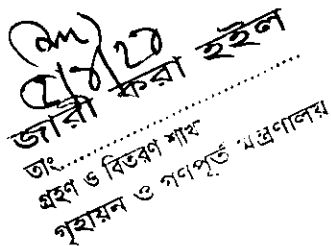 জারী করা হইল
তাং..............................
গ্রহণ ও বিতরণ শাখ
গৃহায়ন ও গণপূর্ত মন্ত্রণালয়